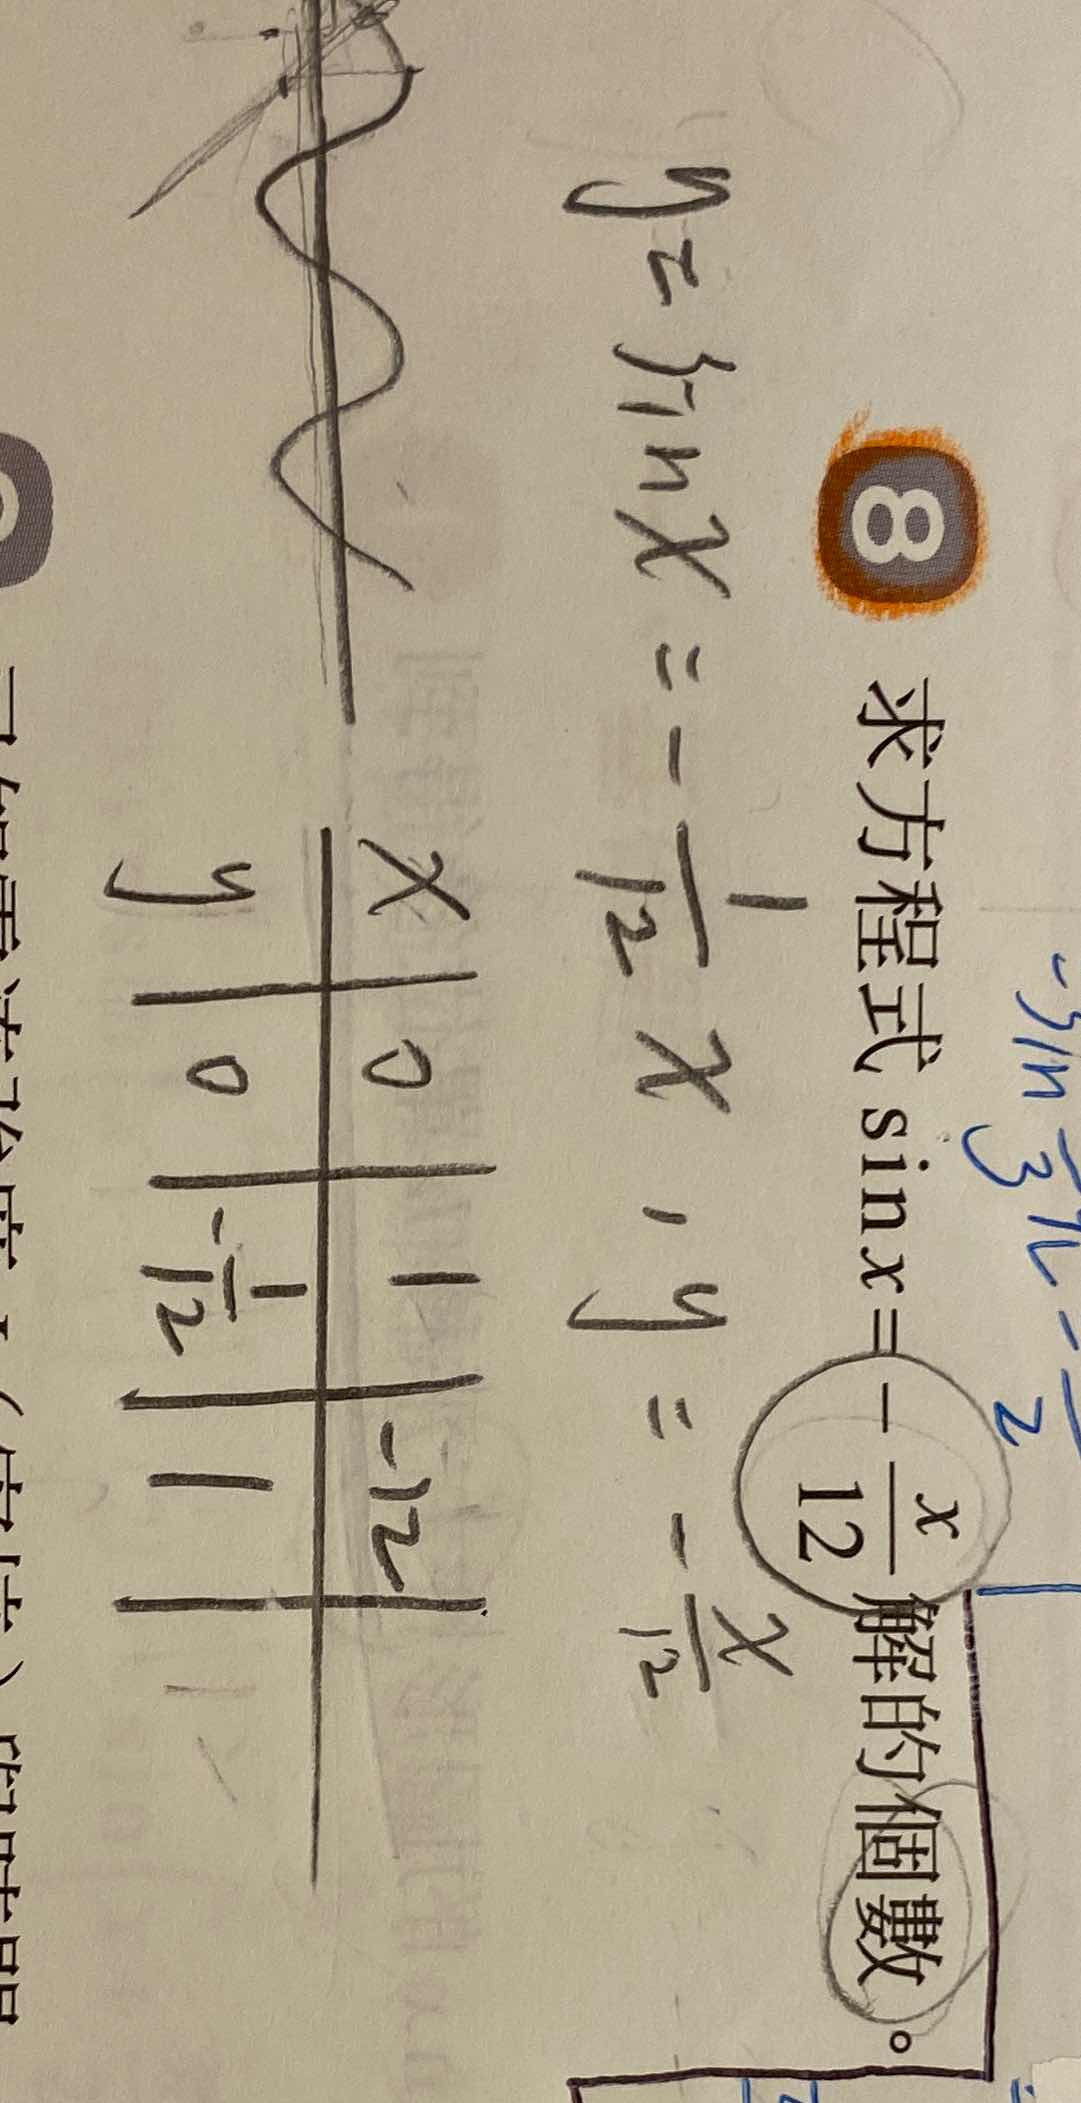 8 求方程式 sin x = - x/12 解的個數。
y = sin x = - 1/12 x , y = - x/12
x 0 1 -12
y 0 - 1/12 1